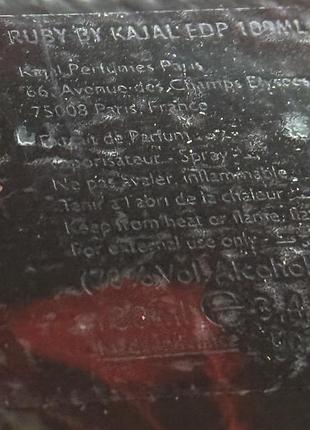 RUBY BY KAJAL EDP 100ML
Kajal Perfumes Paris
66, Avenue des Champs Elysees
75008 Paris, France
Extrait de Parfum
Vaporisateur - Spray
Ne pas avaler, inflammable
Tenir a l'abri de la chaleur
Keep from heat or flame,
For external use only
Vol Alcohol
e 3.4